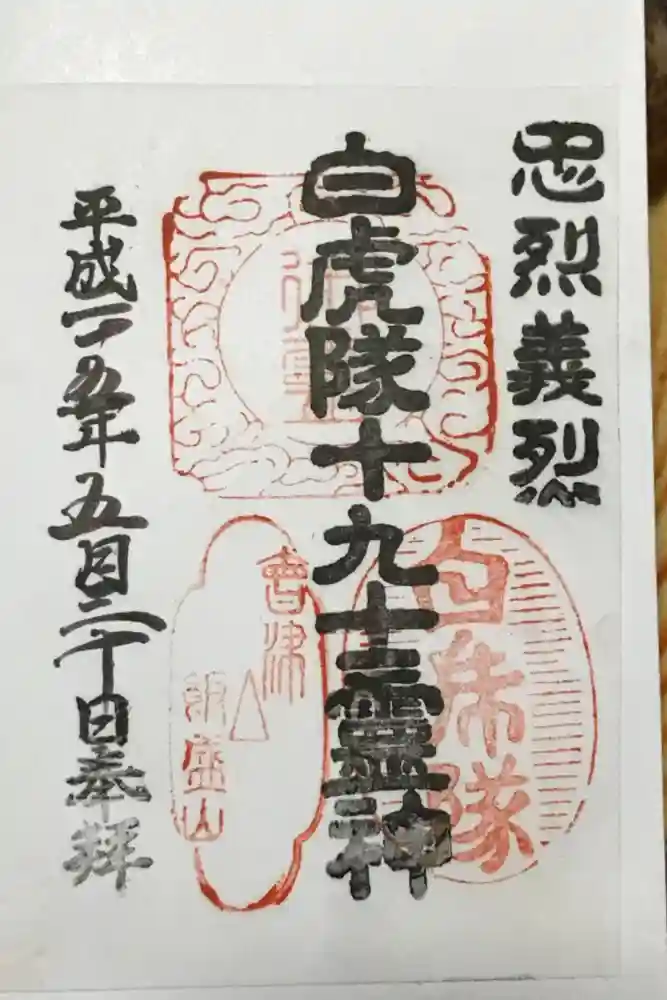 忠烈義烈
白虎隊十九士霊神
平成二五年五月二十日奉拝
白虎隊
會津
飯盛山